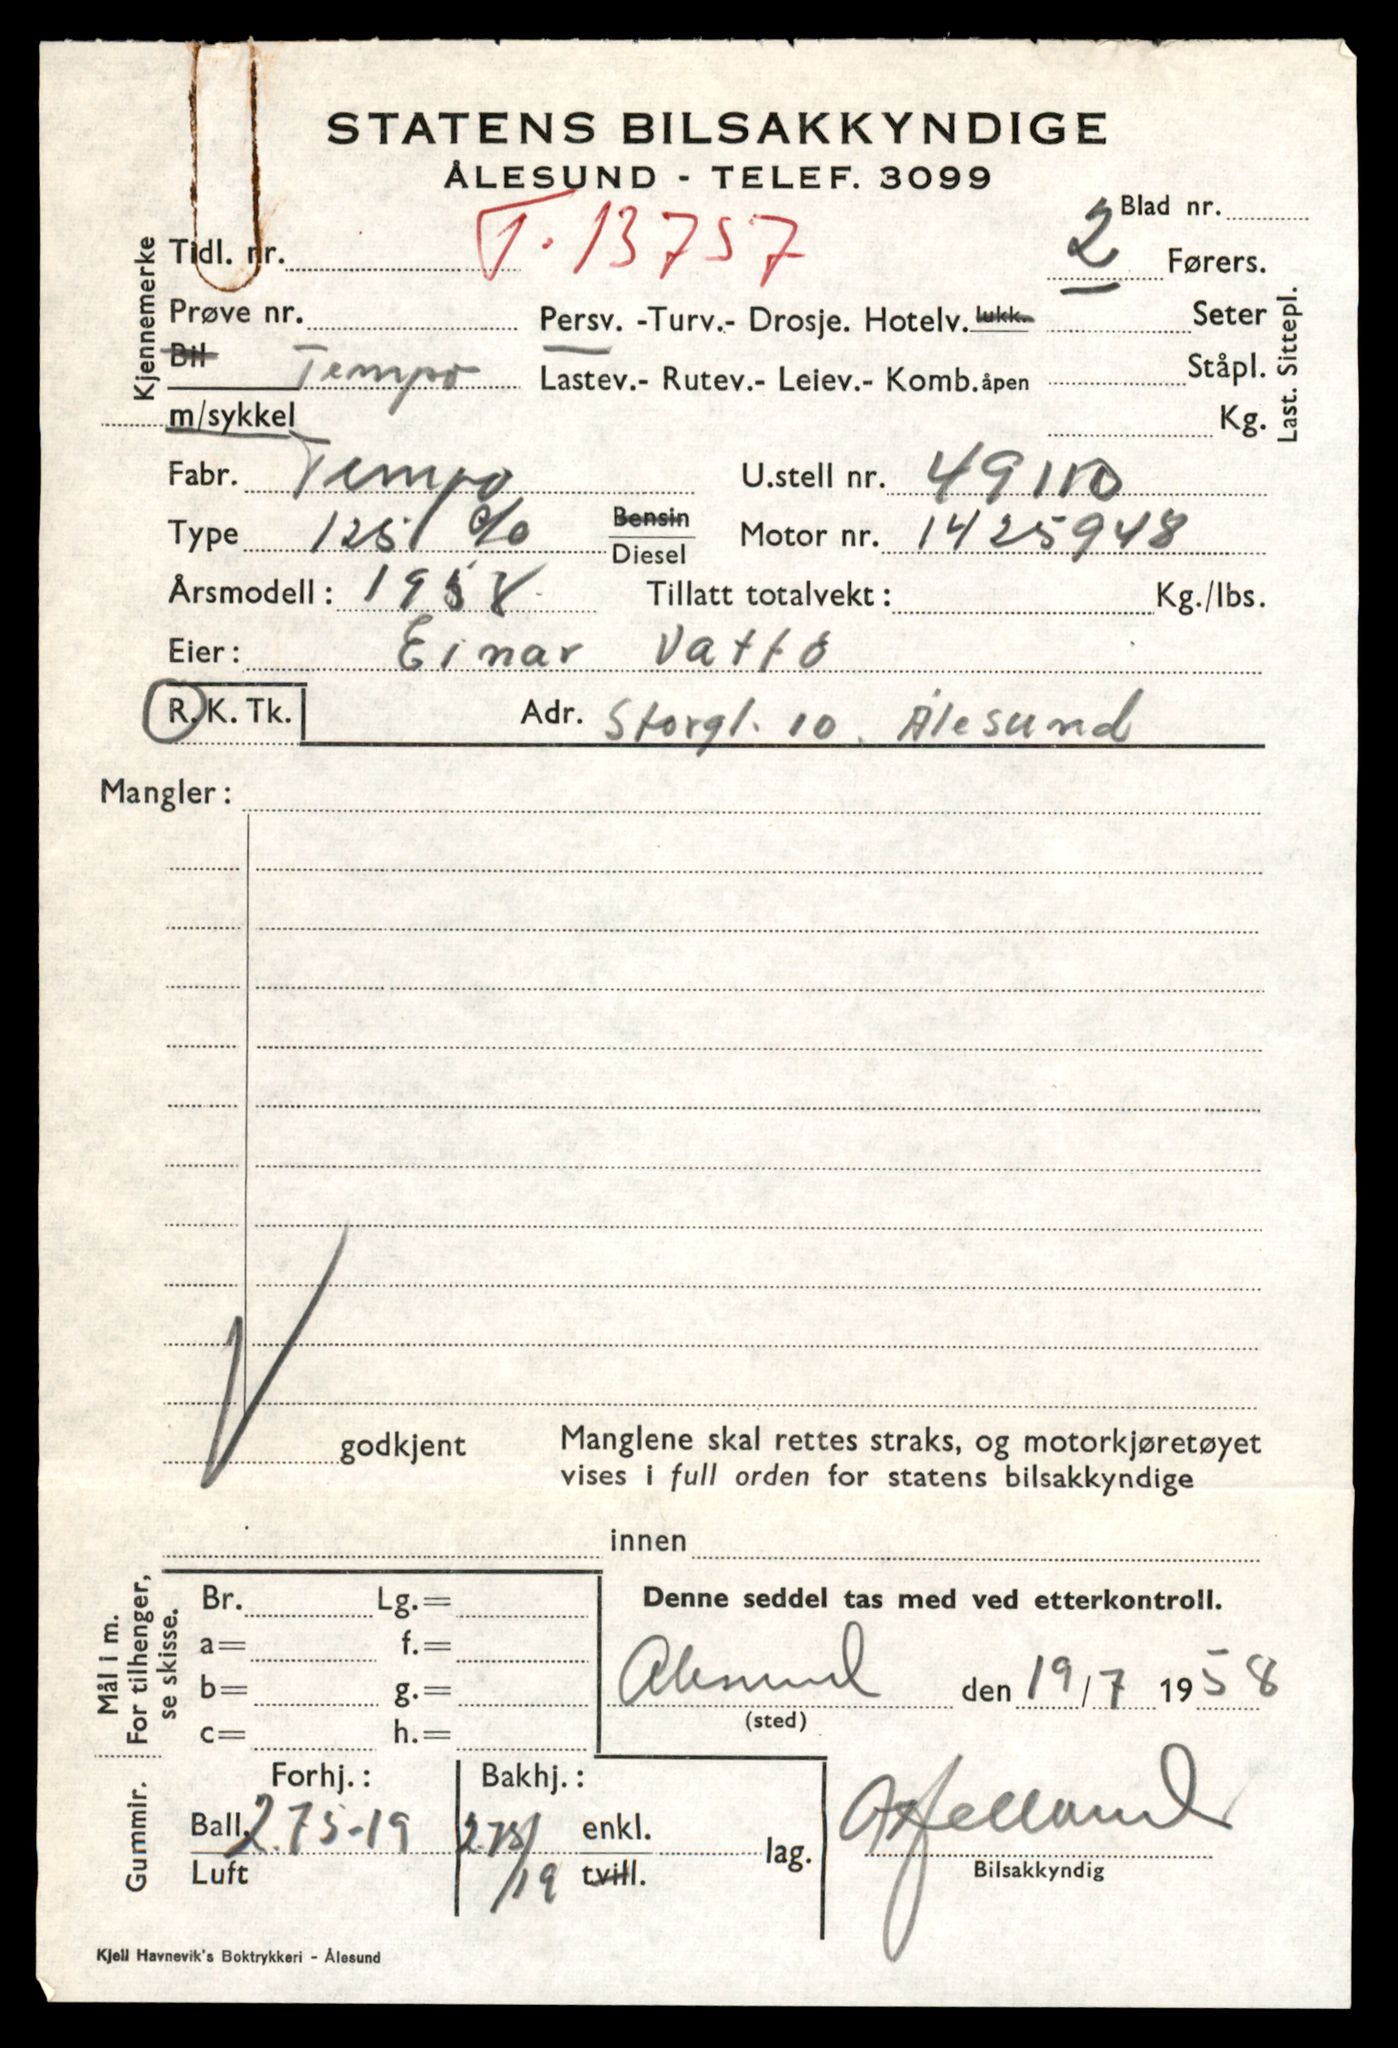 STATENS BILSAKKYNDIGE
ÅLESUND - TELEF. 3099
Blad nr.
Kjennemerke
Tidl. nr. T. 13757 2 Førers.
Prøve nr. Persv. -Turv.- Drosje. Hotelv. lukk. Seter
Bil Tempo Lastev.- Rutev.- Leiev.- Komb. åpen Ståpl.
m/sykkel Kg.
Last. Sittepl.
Fabr. Tempo U.stell nr. 49110
Type 125 Bensin Motor nr. 1425948
Diesel
Årsmodell: 1958 Tillatt totalvekt: Kg./lbs.
Eier: Einar
R. K. Tk. Adr. Storgt. 10. Ålesund
Mangler:
godkjent Manglene skal rettes straks, og motorkjøretøyet
vises i full orden for statens bilsakkyndige
innen
Mål i m.
For tilhenger,
se skisse.
Br. Lg.= Denne seddel tas med ved etterkontroll.
a= f.=
b= g.= Ålesund den 19/7 1958
(sted)
c= h.=
Gummir.
Forhj.: Bakhj.:
Ball. 2.75-19 275/19 enkl. lag.
Luft tvill.
Bilsakkyndig
Kjell Havnevik's Boktrykkeri - Ålesund